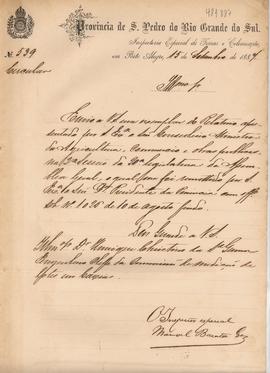 484 887
Provincia de S. Pedro do Rio Grande do Sul.
Inspectoria Especial de Terras e Colonisação,
em Porto Alegre, 15 de Setembro de 1887.
N.º 539
Circular
Illmo Sr
Envio a VS um exemplar do Relatorio apre-
sentado por S. Exª o Sr Conselheiro Ministro
da Agricultura, Commercio e obras publicas
na 2ª Sessão da 20ª legislatura da Assem-
blea Geral, o qual foi remettido por S.
Exª o Snr Dr Presidente da Provincia em offi-
cio Nº 1026 de 10 de agosto findo.
Deus Guarde a V. S.
Illmo Sr Dr Henrique Christino da Sª
Engenheiro Chefe da Commissão de medição de
lotes em Caxias
O Inspector especial
Manoel Barata Goes